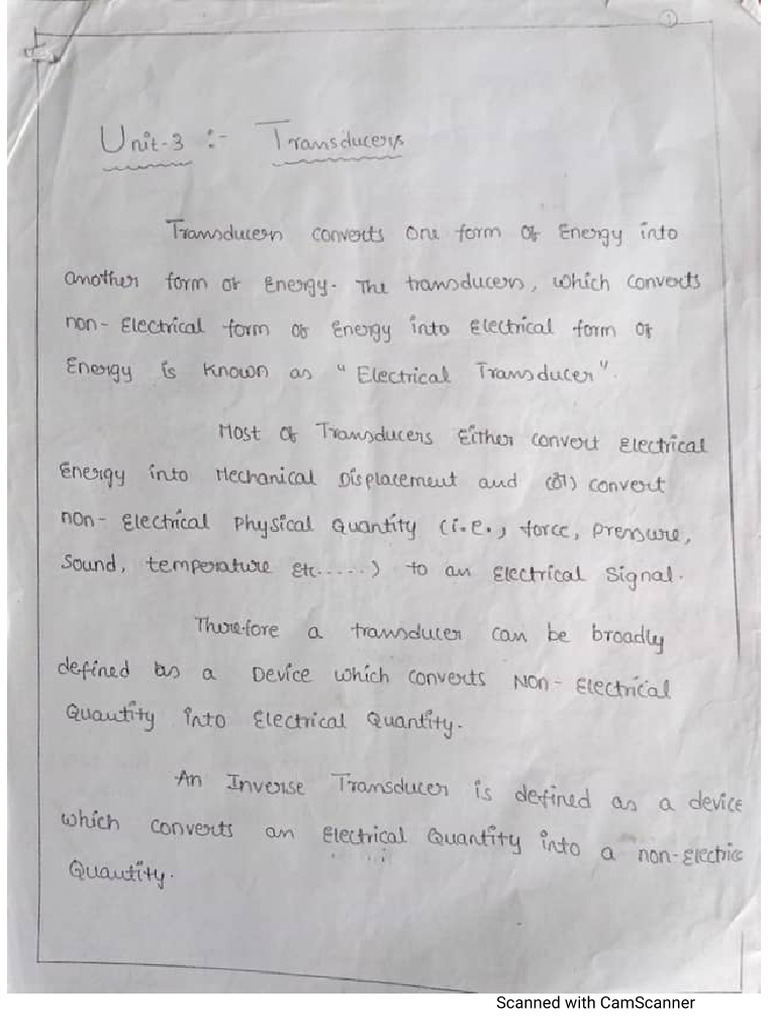 1
Unit-3 :- Transducers
Transducers converts one form of Energy into
another form of Energy. The transducers, which converts
non-Electrical form of Energy into Electrical form of
Energy is known as "Electrical Transducer".
Most of Transducers Either convert Electrical
Energy into Mechanical Displacement and (or) convert
non-Electrical Physical Quantity (i.e., force, pressure,
Sound, temperature etc.....) to an Electrical Signal.
Therefore a transducer can be broadly
defined as a Device which converts NON-Electrical
Quantity into Electrical Quantity.
An Inverse Transducer is defined as a device
which converts an Electrical Quantity into a non-Electric
Quantity.
Scanned with CamScanner